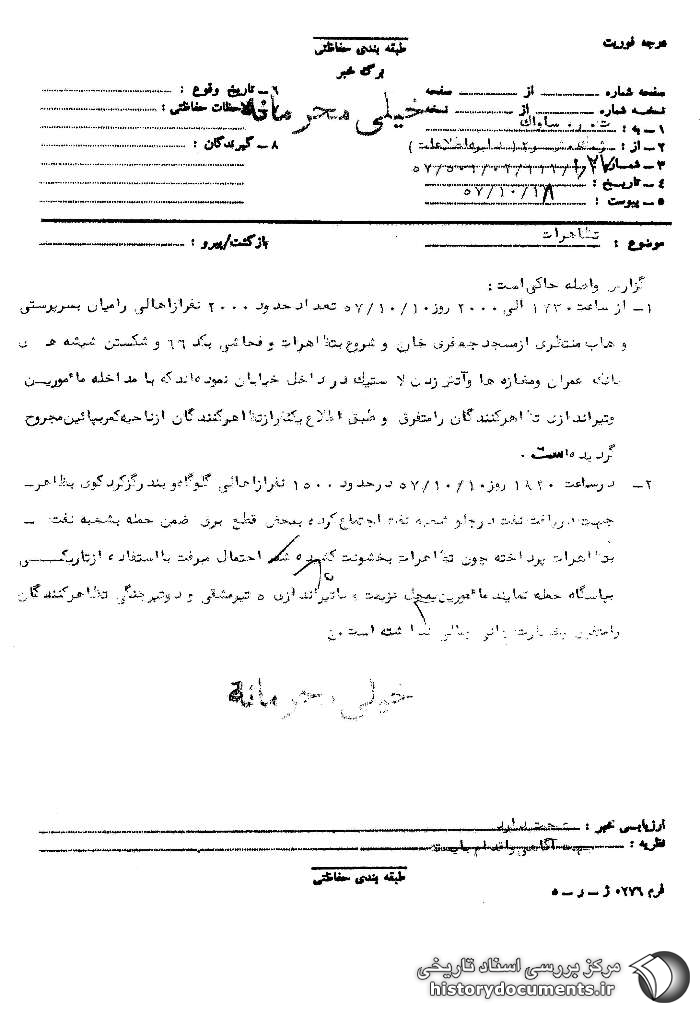 درجه فوریت
طبقه بندی حفاظتی
برگ خبر
صفحه شماره از صفحه
نسخه شماره از نسخه
۱ـ به : ساواک
۲ـ از :
۳ـ شماره
۴ـ تاریخ : ۵۷/۱۰/۱۸
۵ـ پیوست :
۶ـ تاریخ وقوع :
ملاحظات حفاظتی :
۸ـ گیرندگان :
خیلی محرمانه
موضوع : تظاهرات
بازگشت/پیرو :
گزارش واصله حاکی است :
۱ـ از ساعت ۱۷۳۰ الی ۲۰۰۰ روز ۵۷/۱۰/۱۰ تعداد حدود ۲۰۰۰ نفر از اهالی رامیان بسرپرستی
وهاب منتظری از مسجد جعفری خان و شروع بتظاهرات و فحاشی بکد ۶۶ و شکستن شیشه های
بانک عمران ومغازه ها وآتش زدن لاستیک در داخل خیابان نموده اند که با مداخله مأمورین
وتیراندازی تظاهرکنندگان رامتفرق و طبق اطلاع یکنفر از تظاهرکنندگان از ناحیه کمر بپائین مجروح
گردیده است .
۲ـ در ساعت ۱۸۲۰ روز ۵۷/۱۰/۱۰ در حدود ۱۵۰۰ نفر از اهالی گلوگاه و بندرگز کردکوی بظاهرـ
جهت دریافت نفت در جلو شعبه نفت اجتماع کرده بعلت قطع برق ضمن حمله بشعبه نفت ـ
بتظاهرات پرداخته چون تظاهرات بخشونت کشیده شد احتمال میرفت بااستفاده از تاریکی
بپاسگاه حمله نمایند مأمورین بمحل عزیمت و باتیراندازی ۵ تیرمشقی و دوتیرجنگی تظاهرکنندگان
رامتفرق خسارت جانی ومالی نداشته است.
خیلی محرمانه
ارزیابی خبر : صحت دارد
نظریه : جهت آگاهی واقدام بایسته
طبقه بندی حفاظتی
فرم ۰۲۷۶ ژ ـ ر ـ ۵
مرکز بررسی اسناد تاریخی
historydocuments.ir